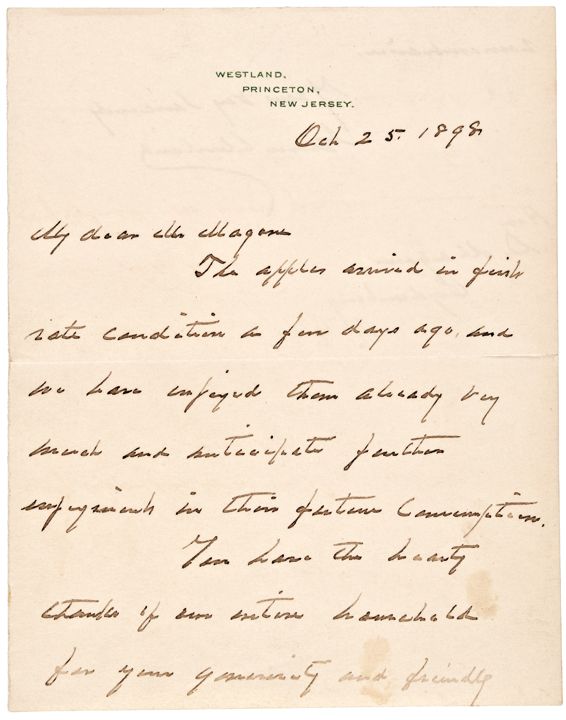 WESTLAND,
PRINCETON,
NEW JERSEY.
Oct 25. 1898
My dear Mr Magone
The apples arrived in first
rate condition a few days ago, and
we have enjoyed them already very
much and anticipate further
enjoyment in their future consumption.
You have the hearty
thanks of our entire household
for your generosity and friendly